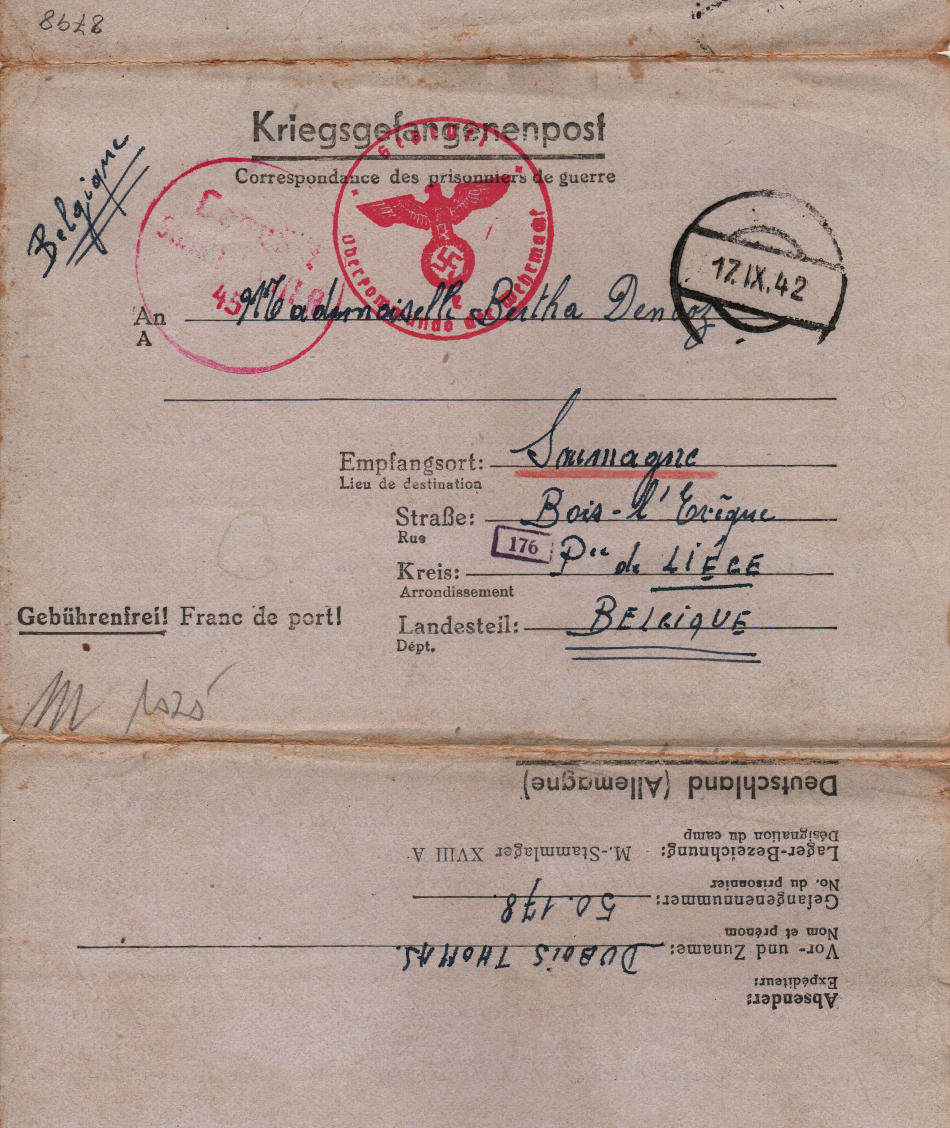 8478
Kriegsgefangenenpost
Correspondance des prisonniers de guerre
Belgique
Geöffnet
Oberkommando der Wehrmacht
e
45
17.IX.42
An Mademoiselle Bertha
A
Empfangsort: Soumagne
Lieu de destination
Straße: Bois-l'Evêque
Rue
176
Kreis: Pce de LIÉGE
Arrondissement
Gebührenfrei! Franc de port!
Landesteil: BELGIQUE
Dépt.
Deutschland (Allemagne)
Lager-Bezeichnung: M.-Stammlager XVIII A
Désignation du camp
Gefangenennummer: 50.178
No. du prisonnier
Vor- und Zuname: DUBOIS THOMAS.
Nom et prénom
Absender:
Expéditeur: